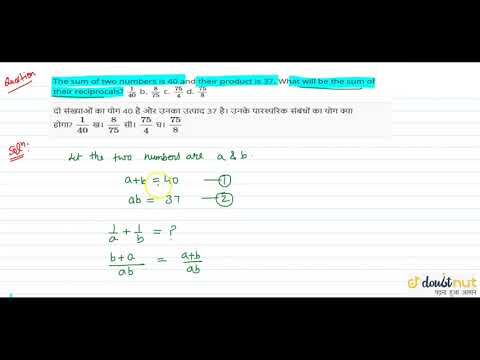 Question
The sum of two numbers is 40 and their product is 37. What will be the sum of
their reciprocals? 1/40 b. 8/75 c. 75/4 d. 75/8
दो संख्याओं का योग 40 है और उनका उत्पाद 37 है। उनके पारस्परिक संबंधों का योग क्या
होगा? 1/40 ख। 8/75 सी। 75/4 घ। 75/8
Solⁿ:
Let the two numbers are a & b.
a+b = 40 — ①
ab = 37 — ②
1/a + 1/b = ?
(b+a)/ab = (a+b)/ab
doubtnut
पढ़ना हुआ आसान